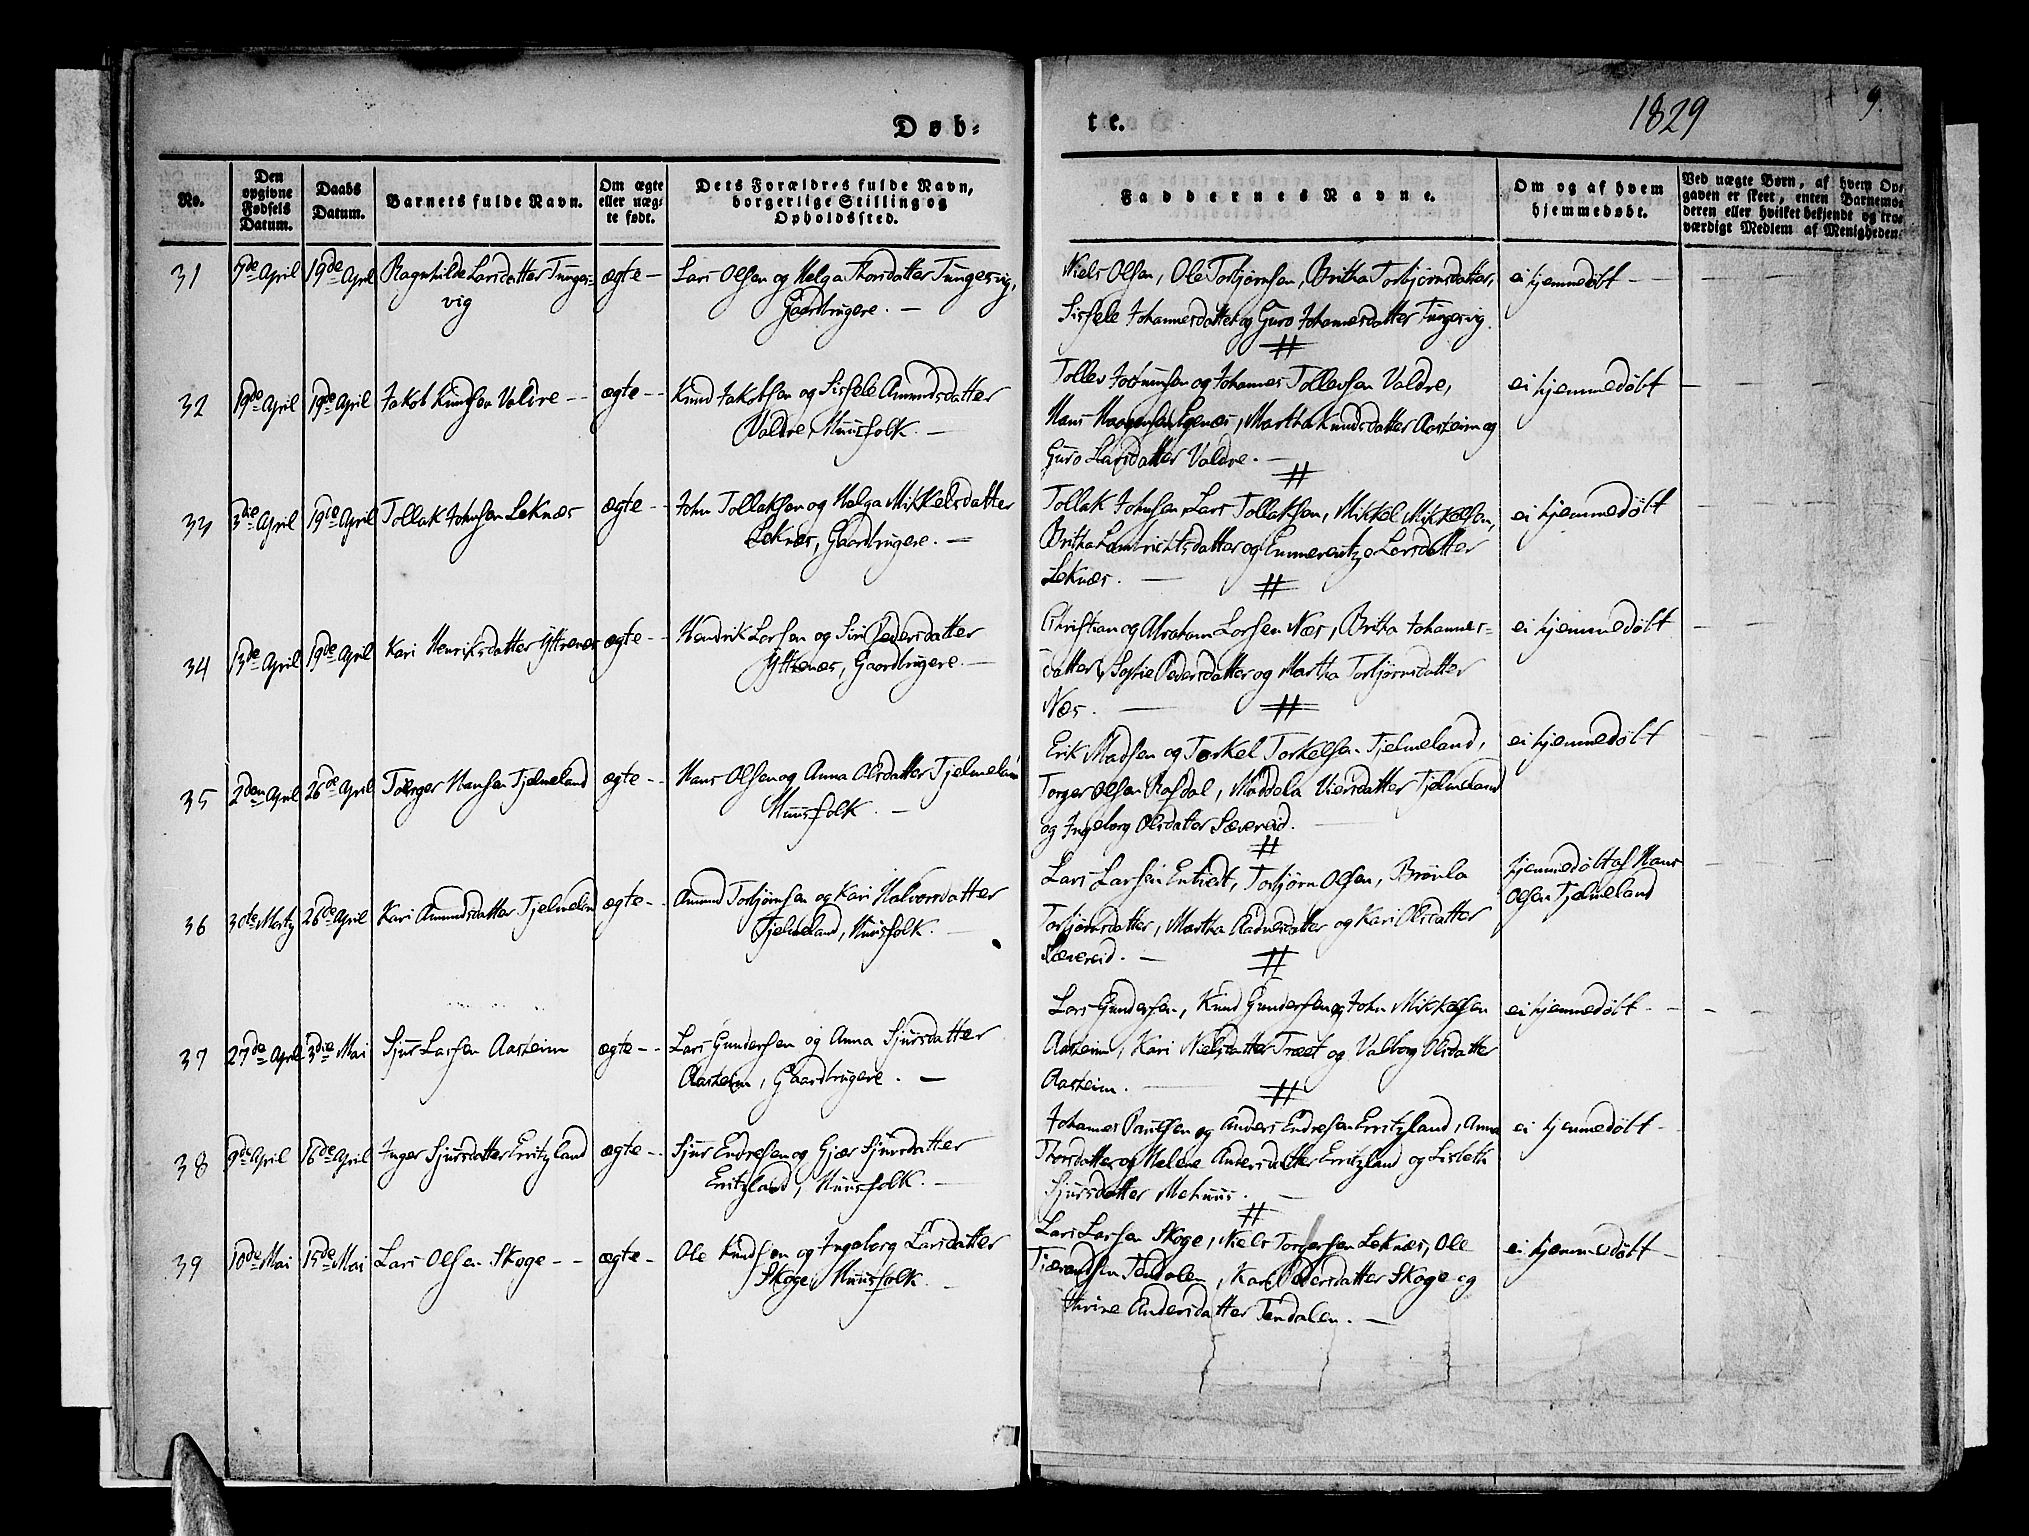 Døb-
te.
1829
9.
No.
Den opgivne Fødsels Datum.
Daabs Datum.
Barnets fulde Navn.
Om ægte eller uæg-te født.
Dets Forældres fulde Navn, borgerlige Stilling og Opholdssted.
Faddernes Navne.
Om og af hvem hjemmedøbt.
Ved uægte Børn, af hvem Op-
gaven er skeet, enten Barnemo-
deren eller hvilket bekjendt og tro-
værdigt Medlem af Menigheden.
31 7de April 19de April Ragnhilde Larsdatter Tunges-
vig
ægte - Lars Olsen og Helga Thorsdatter Tungesvig,
Gaardbrugere. -
Niels Olsen, Ole Torbjørnsen, Britha Torbjørnsdatter,
Sissele Johannesdatter og Guro Johannesdatter Tungesvig.
ei hjemmedøbt -
32 19de April 19de April Jakob Knudsen Valdre - - ægte - - Knud Jakobsen og Sissele Amundsdatter
Valdre, Huusfolk. -
Tollev og Johannes Tollevsen Valdre,
Hans Martha Knudsdatter Aasheim og
Guro Larsdatter Valdre. -
ei hjemmedøbt
33 3die April 19de April Tollak Johnsen Leknæs ægte - - John Tollaksen og Helga Mikkelsdatter
Leknæs, Gaardbrugere. -
Tollak Johnsen, Lars Tollaksen, Mikkel Mikkelsen,
Britha Lambrichtsdatter og Emmerentze Larsdatter
Leknæs. -
ei hjemmedøbt
34 13de April 19de April Kari Henriksdatter Yttrenæs ægte - - Hendrik Larsen og Siri Pedersdatter
Yttrenæs, Gaardbrugere. -
Christian og Abraham Larsen Næs, Britha Johannes-
datter, Sofie Pedersdatter og Martha Torbjørnsdatter
Næs. -
ei hjemmedøbt
35 2den April 26de April Torger Hansen Tjelmeland ægte - - Hans Olsen og Anna Olsdatter Tjelmeland
Huusfolk. -
Erik Madsen og Torkel Torkelsen Tjelmeland,
Torger Olsen Rafdal, Maddela Tjelmeland
og Ingeborg Olsdatter Sævereid.
ei hjemmedøbt
36 30te Martz 26de April Kari Amundsdatter Tjelmeland ægte - - Amund Torbjørnsen og Kari Halvorsdatter
Tjelmeland, Huusfolk.
Lars Larsen Torbjørn Olsen, Brønla
Torbjørnsdatter, Martha Aadnesdatter og Kari Olsdatter
Sævereid. -
hjemmedøbt af Hans
Olsen Tjelmeland
37 27de April 3die Mai Sjur Larsen Aasheim ægte - - Lars Gundersen og Anna Sjursdatter
Aasheim, Gaardbrugere. -
Lars Gundersen, Knud Gundersen og John Mikkelsen
Aasheim, Kari Nielsdatter Træet og Valborg Olsdatter
Aasheim. -
ei hjemmedøbt - -
38 9de April 16de April Inger Sjursdatter Erritzland ægte - - Sjur Endresen og Gjær Sjursdatter
Erritzland, Huusfolk. -
Johannes Poulsen og Anders Endresen Erritzland, Anna
Thorsdatter og Helene Andersdatter Erritzland og Lisbeth
Sjursdatter Mehuus. -
ei hjemmedøbt -
39 10de Mai 15de Mai Lars Olsen Skoge - - ægte - Ole Knudsen og Ingeborg Larsdatter
Skoge, Huusfolk. -
Lars Larsen Skoge, Niels Torgersen Leknæs, Ole
Tjerandsen Tendalen, Kari Pedersdatter Skoge og
Thrine Andersdatter Tendalen. -
ei hjemmedøbt -